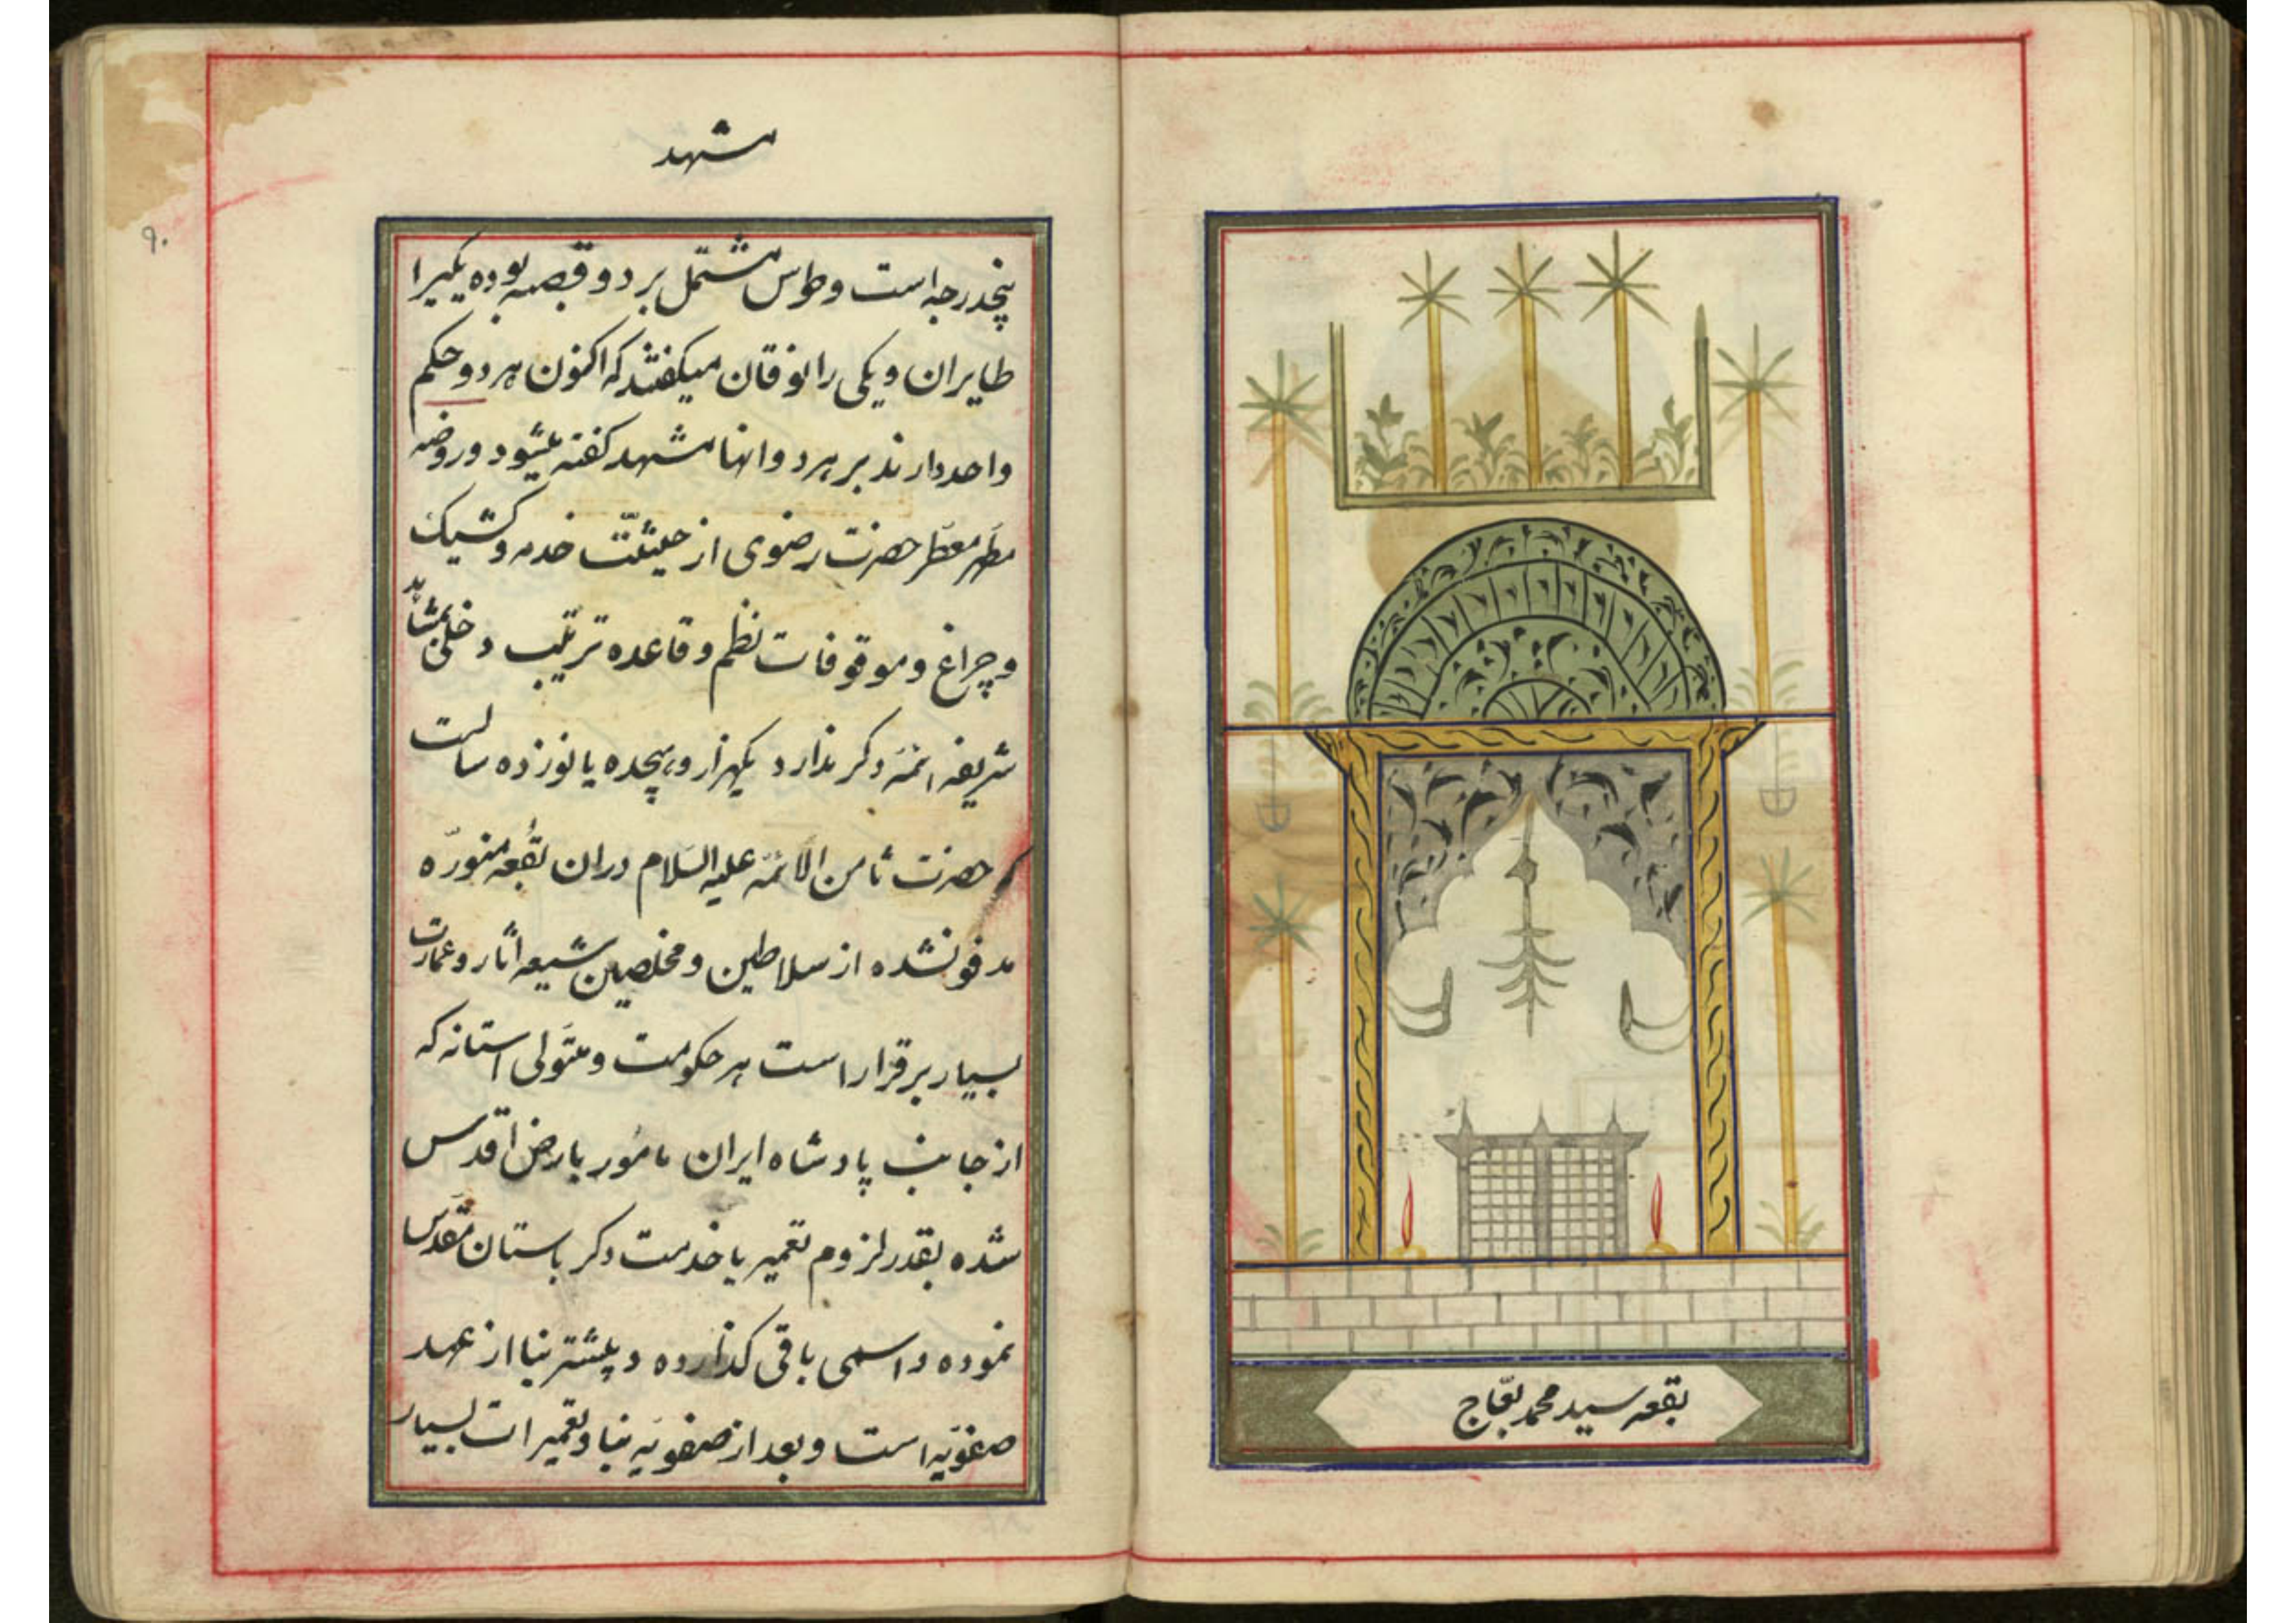 بقعه سید محمد بعاج
مشهد
۹۰
پنجدرجه است و طوس مشتمل بر دو قصبه بوده یکیرا
طایران و یکی را نوقان میکفتند که اکنون هر دو حکم
واحد دارند بر هر دو انها مشهد کفته میشود و روضه
مطهر معطر حضرت رضوی از حیثیّت خدمه و کشیک
و چراغ و موقوفات نظم و قاعده ترتیب دخلی بمشاهد
شریفه ائمّه دکر ندارد یکهزار و هیجده یا نوزده سالست
که حضرت ثامن الائمّه علیه السّلام دران بقعه منورّه
مدفونشده از سلاطین و مخلصین شیعه اثار و عمارت
بسیار برقرار است هر حکومت و متولی استانه که
از جانب پادشاه ایران مامور بارض اقدس
شده بقدر لزوم تعمیر یا خدمت دکر باستان مقدّس
نموده و اسمی باقی کذارده و بیشتر بنا از عهد
صفویّه است و بعد از صفویّه بنا و تعمیرات بسیار